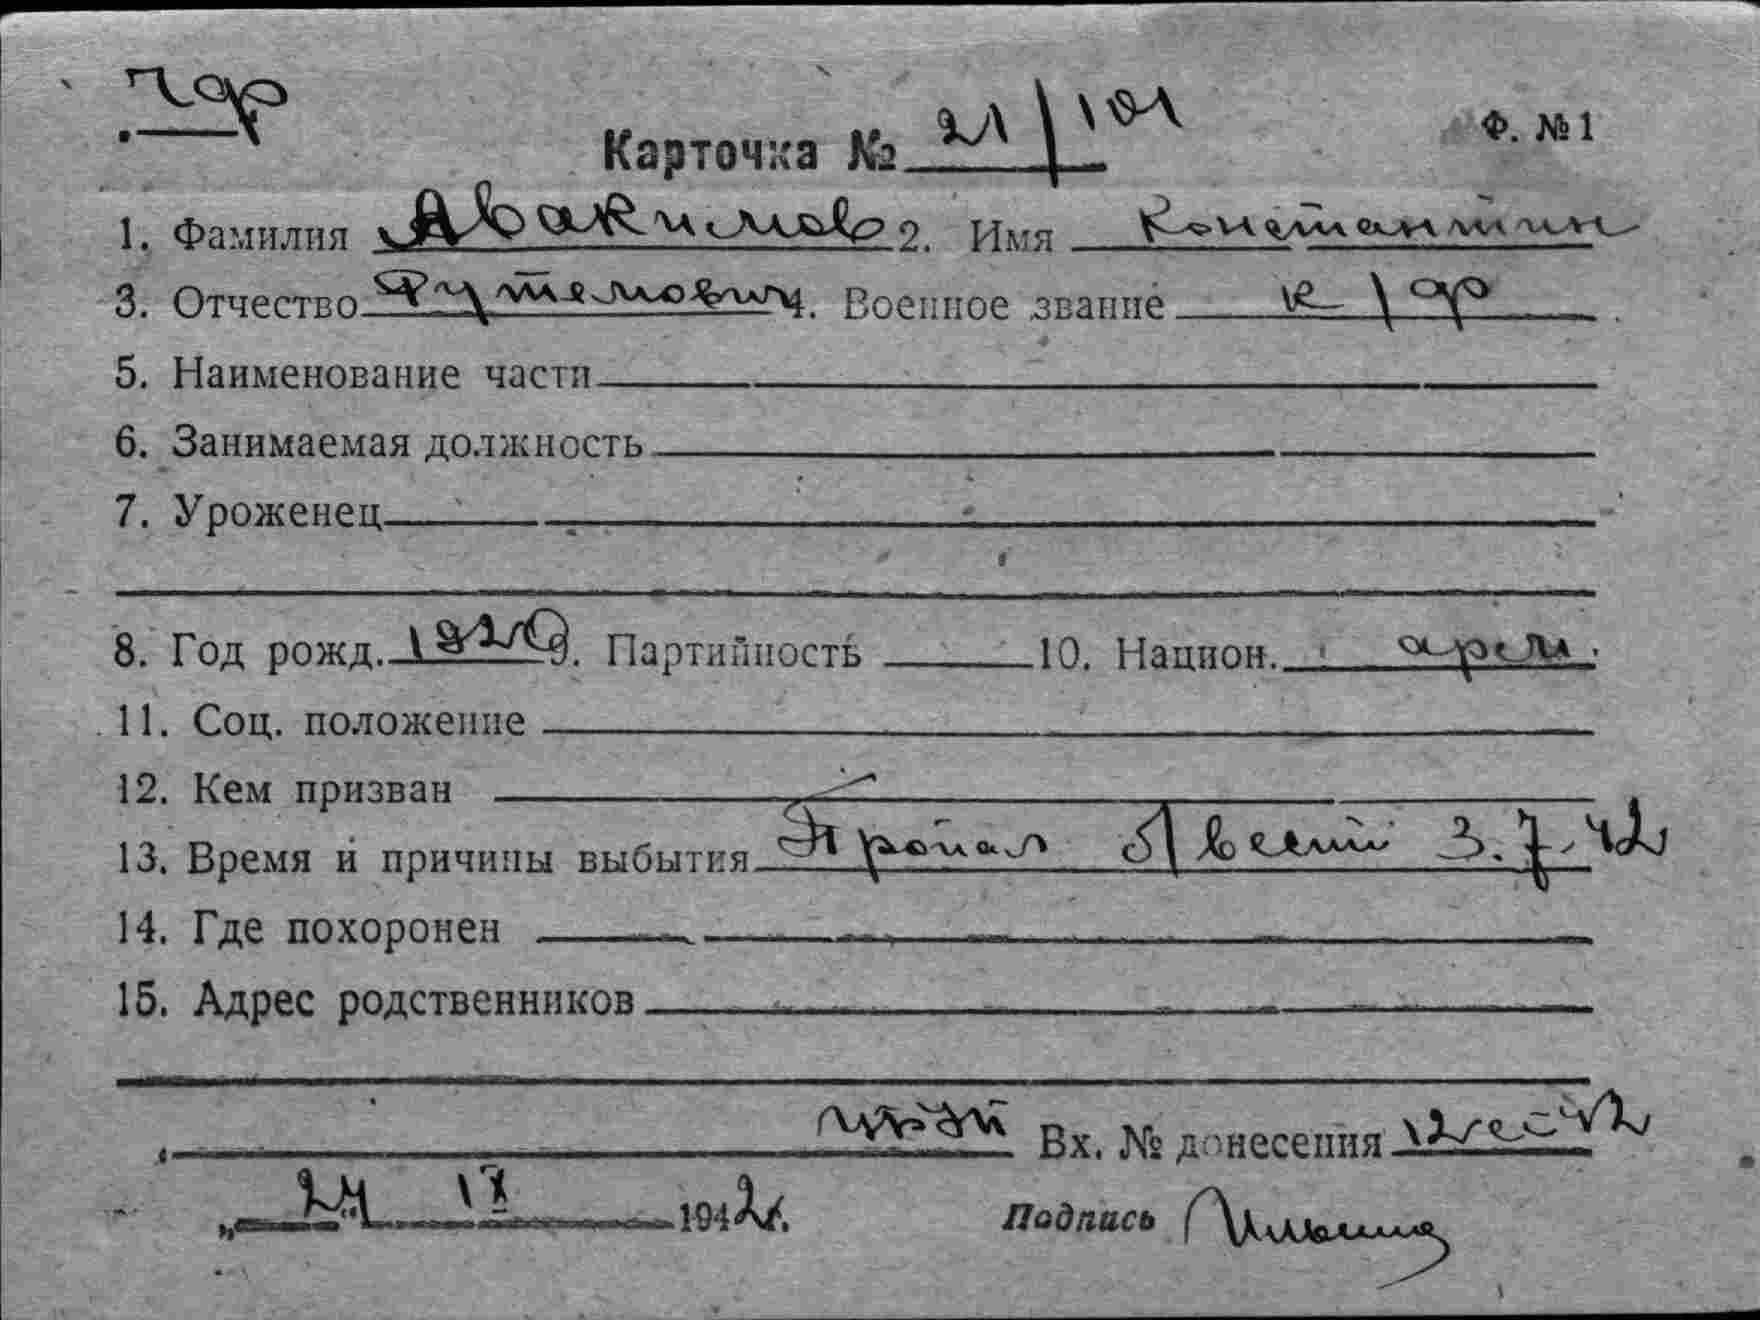 ЧФ
Карточка № 21/101 Ф. № 1
1. Фамилия Авакимов 2. Имя Константин
3. Отчество Артемович 4. Военное звание к/ф
5. Наименование части
6. Занимаемая должность
7. Уроженец
8. Год рожд. 1920 9. Партийность 10. Национ. арм.
11. Соц. положение
12. Кем призван
13. Время и причины выбытия Пропал б/вести 3.7.42
14. Где похоронен
15. Адрес родственников
Вх. № донесения
„24 IX 1942 г. Подпись Ильина